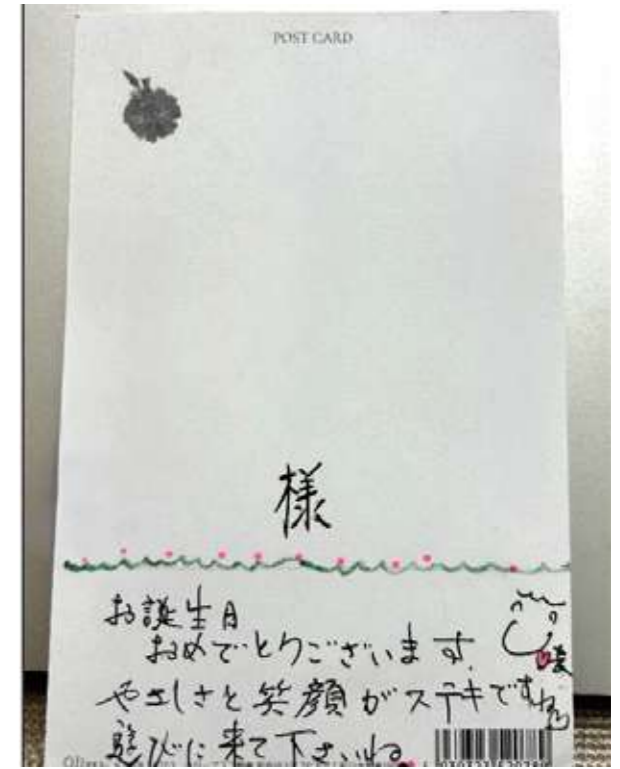 POST CARD
様
お誕生日
おめでとうございます。
やさしさと笑顔がステキですね
遊びに来て下さいね。